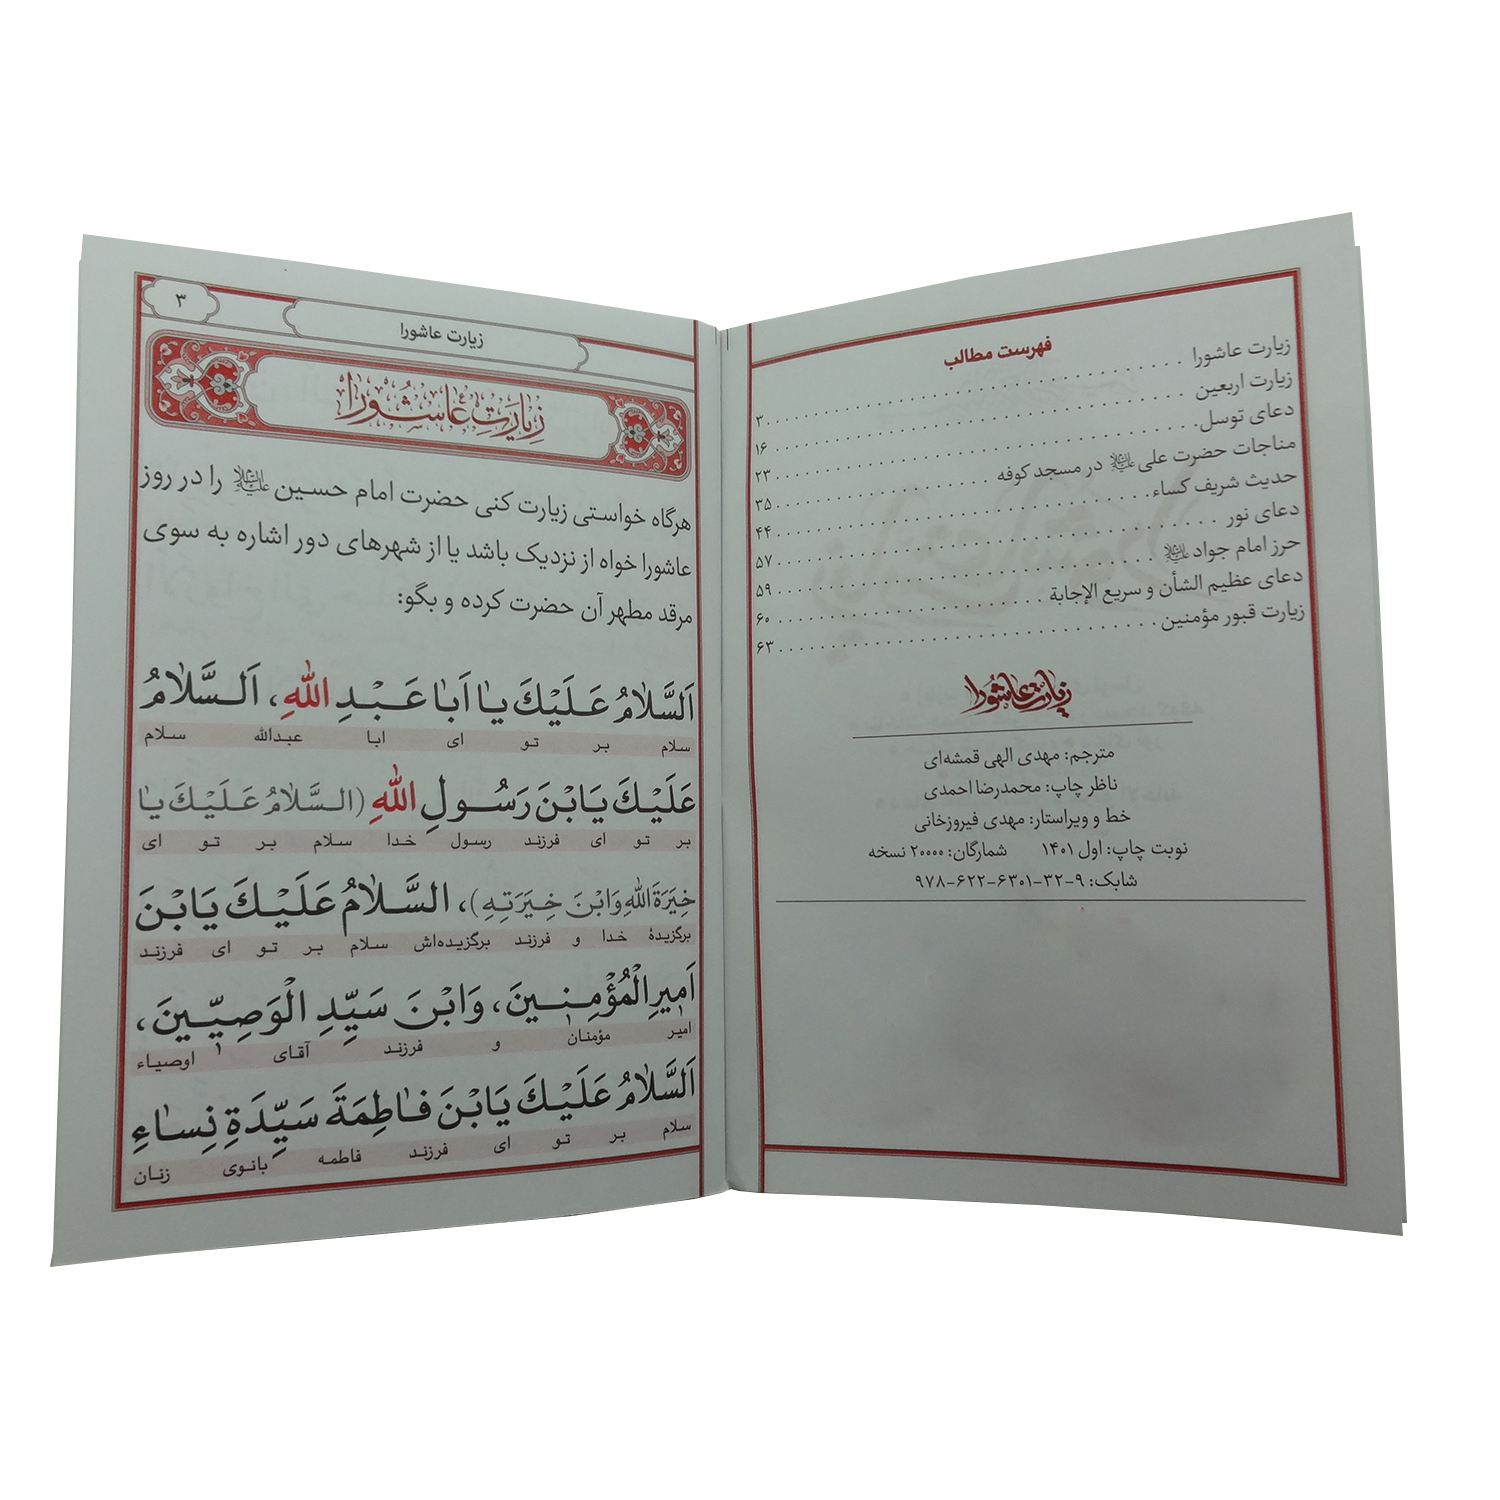 فهرست مطالب
زیارت عاشورا . . . . . . . . . . ۳
زیارت اربعین . . . . . . . . . . ۱۶
دعای توسل . . . . . . . . . . ۲۳
مناجات حضرت علی علیه‌السلام در مسجد کوفه . . . . . . . . . . ۳۵
حدیث شریف کساء . . . . . . . . . . ۴۴
دعای نور . . . . . . . . . . ۵۷
حرز امام جواد علیه‌السلام . . . . . . . . . . ۵۹
دعای عظیم الشأن و سریع الإجابة . . . . . . . . . . ۶۰
زیارت قبور مؤمنین . . . . . . . . . . ۶۳
زیارت عاشورا
مترجم: مهدی الهی قمشه‌ای
ناظر چاپ: محمدرضا احمدی
خط و ویراستار: مهدی فیروزخانی
نوبت چاپ: اول ۱۴۰۱ شمارگان: ۲۰۰۰۰ نسخه
شابک: ۹-۳۲-۶۳۰۱-۶۲۲-۹۷۸
زیارت عاشورا ۳
زِیارَتِ عاشُورا
هرگاه خواستی زیارت کنی حضرت امام حسین علیه‌السلام را در روز
عاشورا خواه از نزدیک باشد یا از شهرهای دور اشاره به سوی
مرقد مطهر آن حضرت کرده و بگو:
اَلسَّلامُ عَلَیْكَ یا اَبا عَبْدِ اللّٰهِ، اَلسَّلامُ
سلام بر تو ای ابا عبدالله سلام
عَلَیْكَ یَابْنَ رَسُولِ اللّٰهِ (السَّلامُ عَلَیْكَ یا
بر تو ای فرزند رسول خدا سلام بر تو ای
خِیَرَةَ اللّٰهِ وَابْنَ خِیَرَتِهِ)، السَّلامُ عَلَیْكَ یَابْنَ
برگزیدهٔ خدا و فرزند برگزیده‌اش سلام بر تو ای فرزند
اَمیرِالْمُؤْمِنینَ، وَابْنَ سَیِّدِ الْوَصِیّینَ،
امیر مؤمنان و فرزند آقای اوصیاء
اَلسَّلامُ عَلَیْكَ یَابْنَ فاطِمَةَ سَیِّدَةِ نِساءِ
سلام بر تو ای فرزند فاطمه بانوی زنان